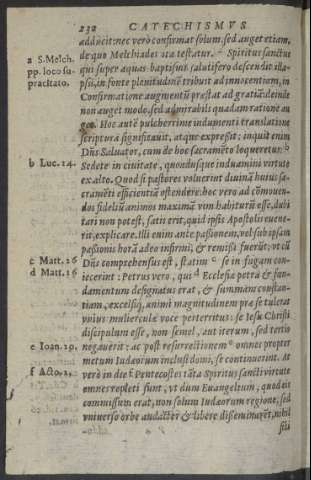 232 CATECHISMVS
adducit: nec verò confirmat solum, sed auget etiam,
a S. Melch. de quo Melchiades ita testatur. ᵃ Spiritus sanctus
pp. loco su- qui super aquas baptismi salutifero descendit illa-
pracitato. psu, in fonte plenitudinẽ tribuit ad innocentiam, in
Confirmatione augmentũ præstat ad gratiã: deinde
non auget modo, sed admirabili quadam ratione au
get. Hoc autẽ pulcherrime indumenti translatione
scriptura significauit, atque expreßit: inquit enim
Dñs Saluator, cum de hoc sacramẽto loqueretur: ᵇ
b Luc. 24. Sedete in ciuitate, quoadusque induamini virtute
ex alto. Quod si pastores voluerint diuinã huius sa-
cramẽti efficientiã ostendere. hoc vero ad cõmouen-
dos fideliũ animos maximã vim habiturũ esse, dubi
tari non potest, satis erit, quid ipsis Apostolis euene-
rit, explicare. Illi enim ante paßionem, vel sub ipsam
paßionis horã adeo infirmi, & remißi fuerũt: vt cũ
c Matt. 26 Dñs comprehensus eßt, statim ᶜ se in fugam con-
d Matt. 16 iecerint: Petrus vero, qui ᵈ Ecclesiæ petra & fun-
damentum designatus erat, & summam constan-
tiam, excelsiq, animi magnitudinem præ se tulerat
vnius mulierculæ voce perterritus: se Iesu Christi
discipulum esse, non semel, aut iterum, sed tertio
e Ioan. 20. negauerit: ac post resurrectionem ᵉ omnes propter
metum Iudæorum inclusi domi, se continuerint. At
f Acto. 2, verò in die ᶠ Pentecostes tãta Spiritus sancti virtute
omnes repleti sunt, vt dum Euangelium, quod eis
commissum erat, non solum Iudæorum regione, sed
vniuerso orbe audacter & libere disseminarẽt, nihil
sibi